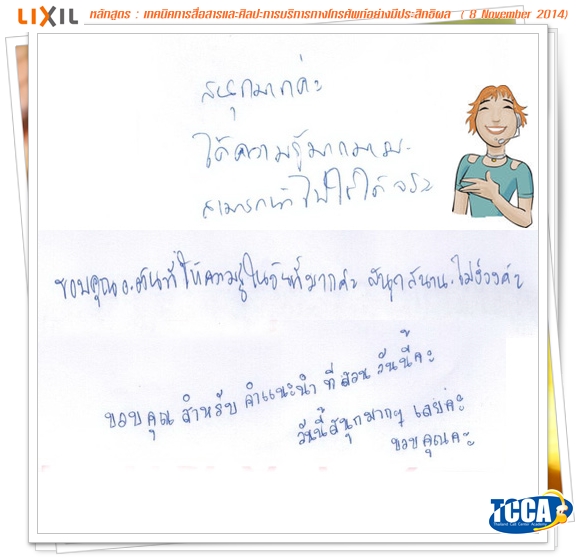 LIXIL หลักสูตร : เทคนิคการสื่อสารและศิลปะการบริการทางโทรศัพท์อย่างมีประสิทธิผล ( 8 November 2014)
สนุกมากค่ะ
ได้ความรู้มากมาย
สามารถนำไปใช้ได้จริง
ขอบคุณอ.ต้นที่ให้ความรู้ในวันนี้มากค่ะ สนุกสนาน.ไม่ง่วงค่ะ
ขอบคุณ สำหรับ คำแนะนำ ที่สอน วันนี้คะ
วันนี้สนุกมากๆ เลยค่ะ
ขอบคุณคะ
TCCA
Thailand Call Center Academy